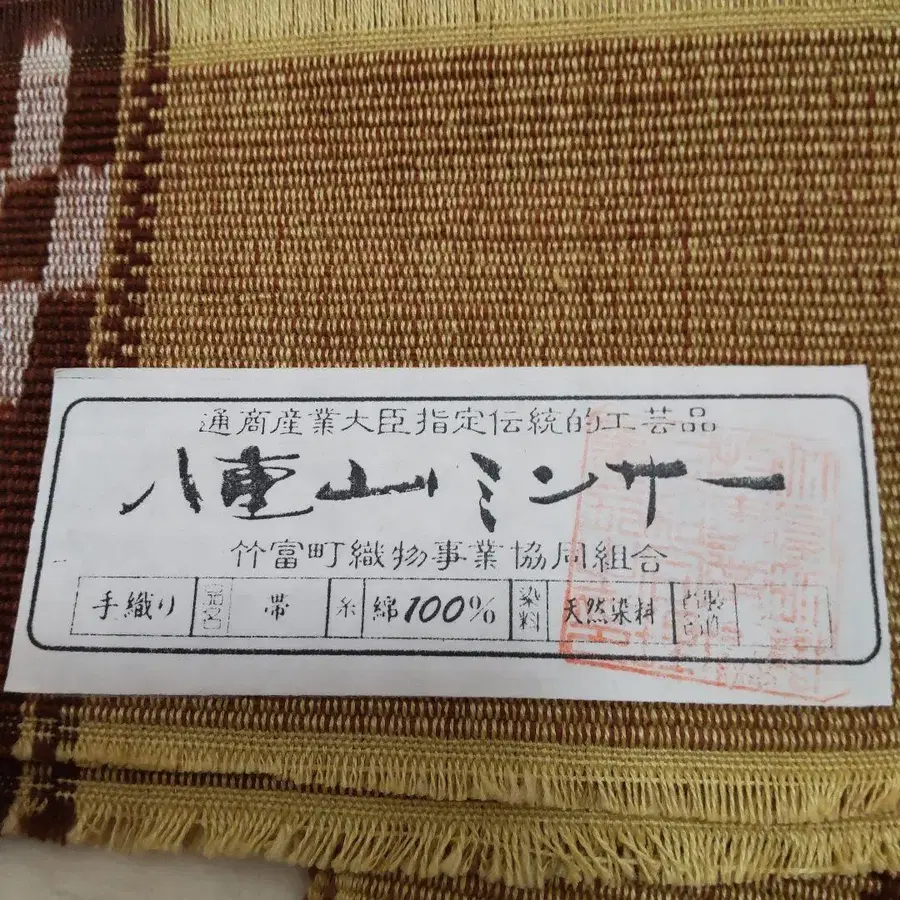 通商産業大臣指定伝統的工芸品
八重山ミンサー
竹富町織物事業協同組合
手織り 品名 帯 糸 綿100% 染料 天然染料